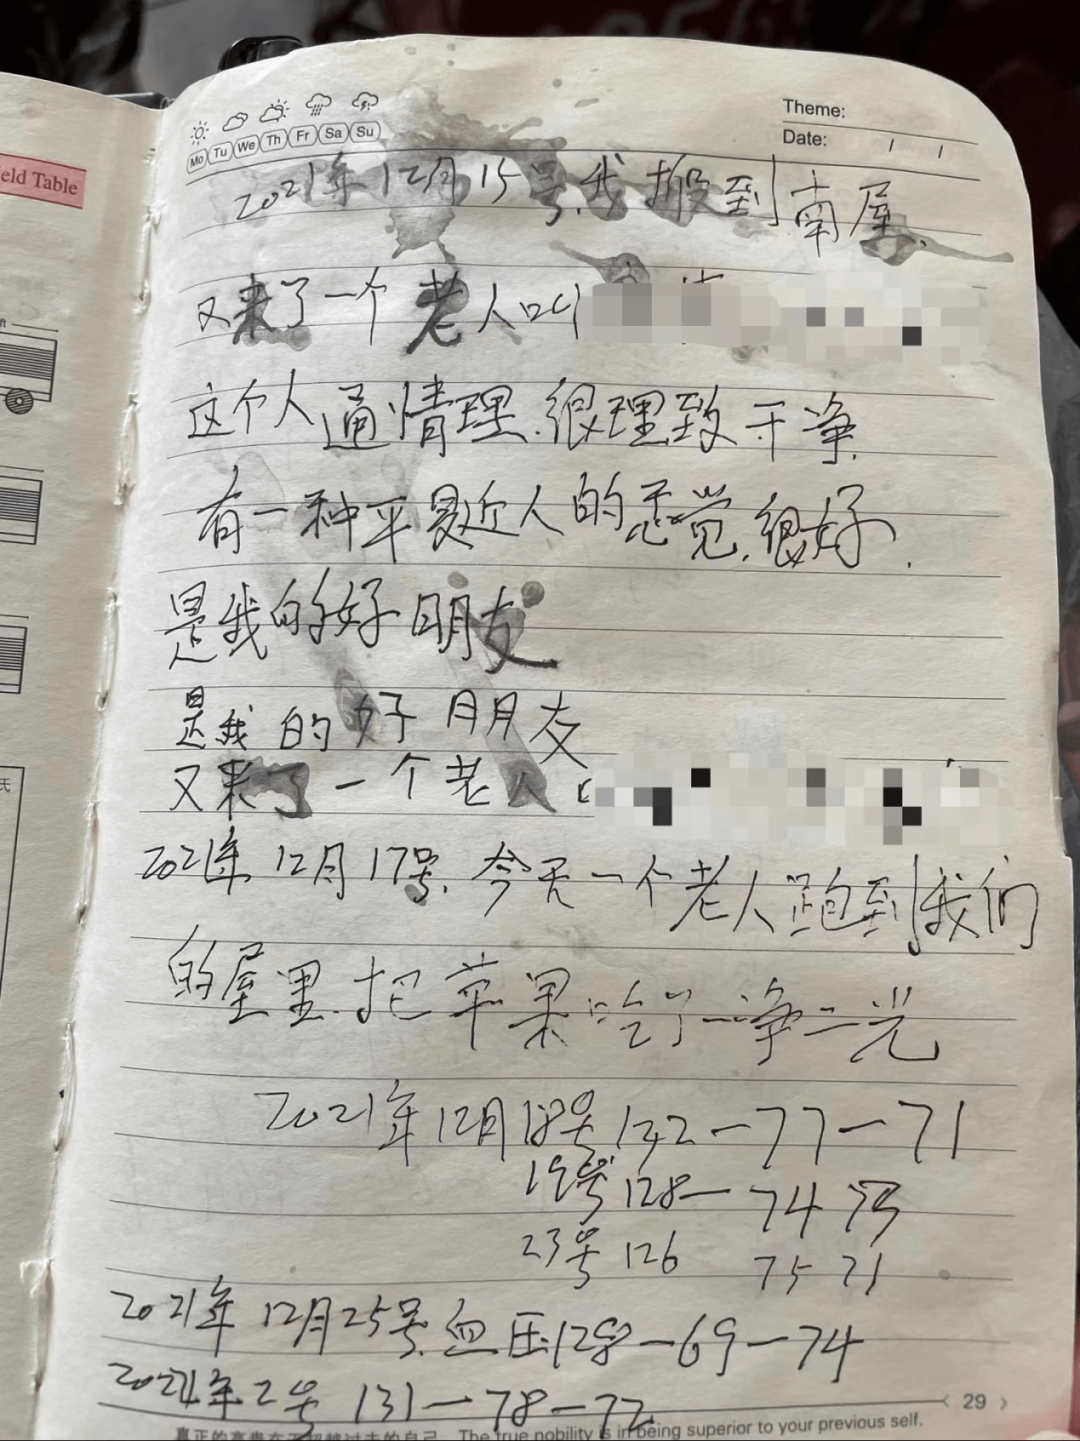 Theme:
Mo Tu We Th Fr Sa Su
Date: / /
eld Table
2021年12月15号,我搬到南屋.
又来了一个老人叫
这个人通情理.很理致干净.
有一种平易近人的感觉.很好.
是我的好朋友
是我的好朋友
又来了一个老人
2021年12月17号.今天一个老人跑到我们
的屋里.把苹果吃了一净二光
2021年12月18号132-77-71
19号128-74 75
23号126 75 71
2021年12月25号.血压128-69-74
年2号131-78-72
29
真正的高贵在于超越过去的自己 The true nobility is in being superior to your previous self.